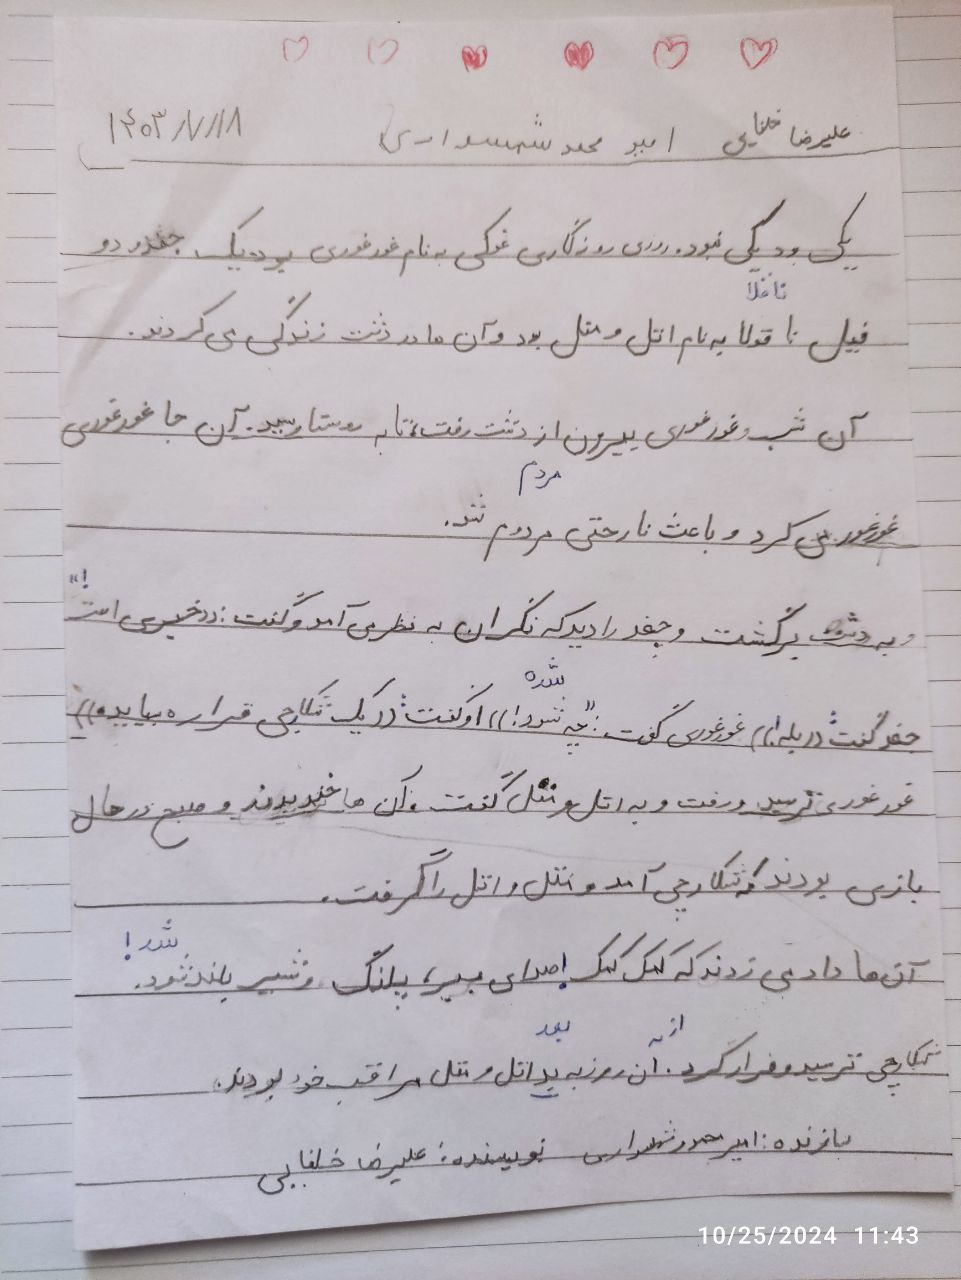 علیرضا خلفایی امیر محمد شهسواری ۱۴۰۳/۷/۱۸
یکی بود یکی نبود. روزی روزگاری غوکی به نام غورغوری بود. یک جغد و دو
ناقلا
فیل نا قولا به نام اتل و متل بود و آن ها در دشت زندگی می کردند.
آن شب غورغوری بیرون از دشت رفت، تا به روستا رسید. آن جا غورغوری
مردم
غورغور می کرد و باعث نارحتی مردوم شد.
!"
و به دشت برگشت و جغد را دید که نگران به نظر می آمد و گفت: ((خبری است
شده
جغد گفت: ((بله!)) غورغوری گفت: "چه شود!)) او گفت: ((یک شکارچی قرار ه بیاید.))
غورغوری ترسید و رفت و به اتل و متل گفت و آن ها خندیدند و صبح در حال
بازی بودند که شکارچی آمد و متل و اتل را گرفت.
شد!
آن ها داد می زدند که کمک کمک! صدای ببر، پلنگ و شیر بلند شود.
از به بعد
شکارچی ترسید و فرار کرد. آن روز به بد اتل و متل مراقب خود بودند.
سازنده: امیرمحمد شهسواری نویسنده: علیرضا خلفایی
10/25/2024 11:43